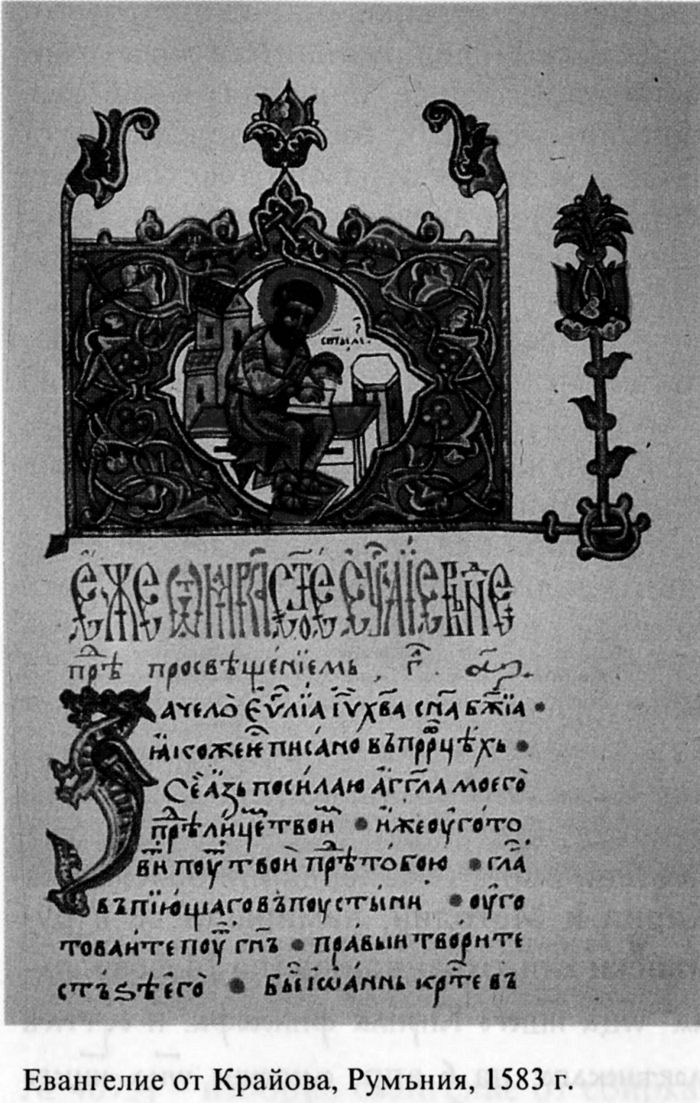 Е҆́же ѿ Ма́рка ст҃о́е є҆ѵⷢ҇лїе въ нⷣе
прⷣѣ просвѣщенїемь , г҃ .
Зачело̀ Є҆ѵⷢ҇лїа і҆ѵ хв҃а сн҃а бж҃їа •
ꙗ҆коже є҆ⷭ҇ писано въ прⷪ҇рцѣхь •
Се а҆́зь посилаю а҆́гг҃ла моего̀
прѣⷣ лице́мⷨ твоиⷨ • и҆́же оу҆гото
ви́ поуⷮ твои̏ прѣⷣ тобою • гла̀
въпїю́щаго въ поустыни • оу҆го
товаите поуⷮ гн҃ь • пра́вы и творите
стъѕѣ є҆го̀ • Бы́ⷭ і҆ѡа́ннь крⷭ҇те въ
Евангелие от Крайова, Румъния, 1583 г.